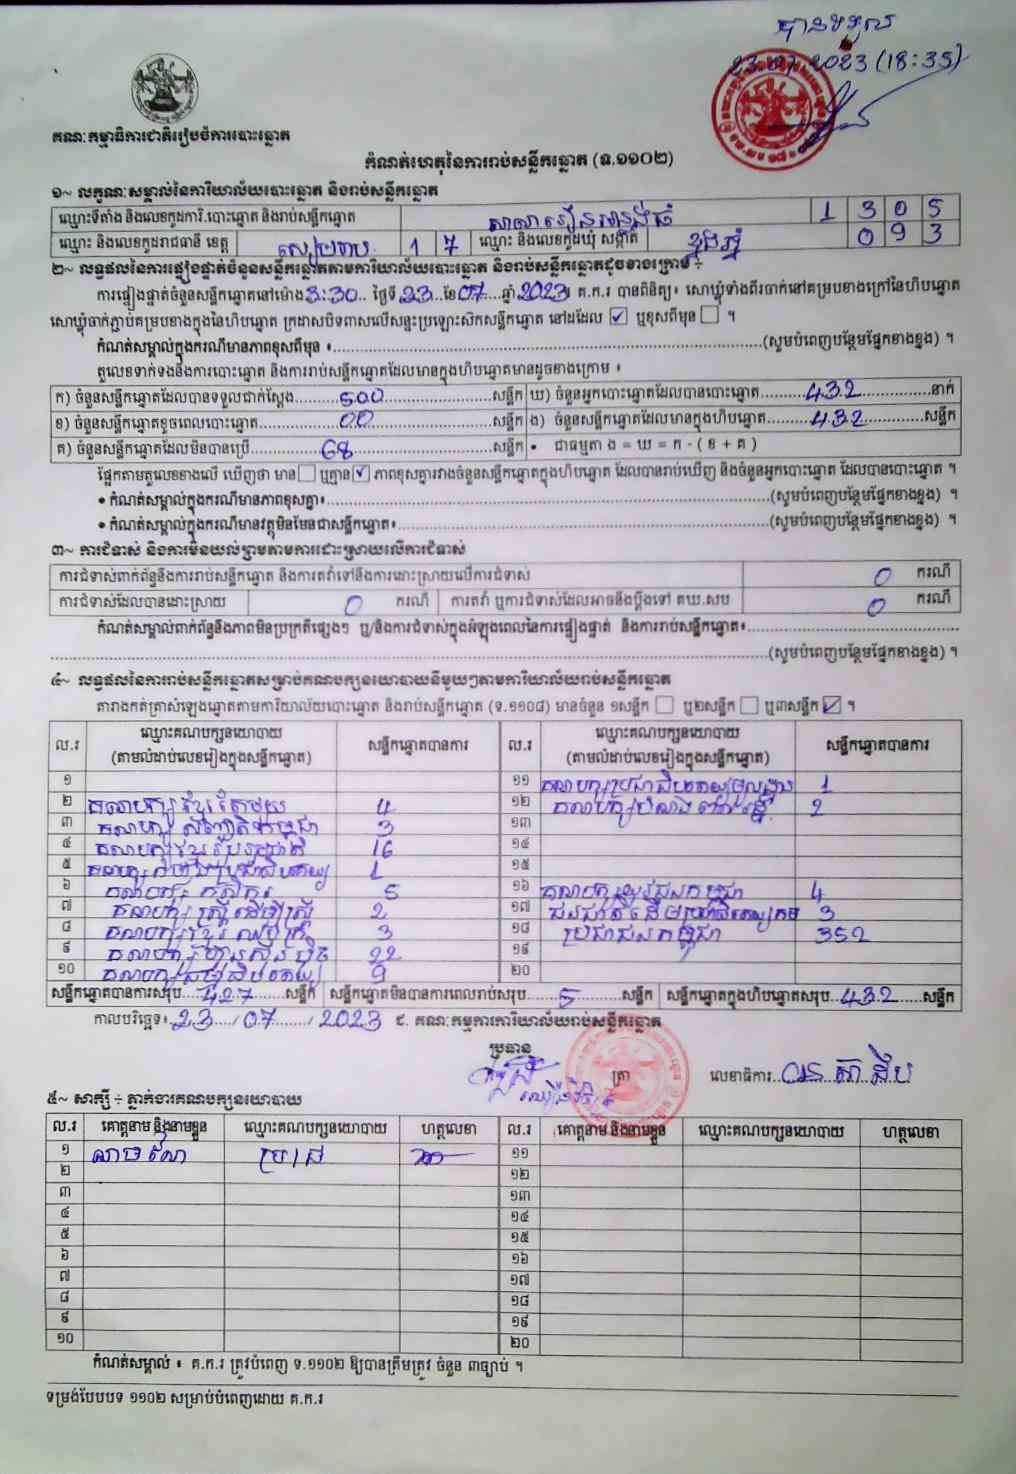 បានទទួល
23.07.2023 (18:35)
គណៈកម្មាធិការជាតិរៀបចំការបោះឆ្នោត
កំណត់ហេតុនៃការរាប់សន្លឹកឆ្នោត (ទ.១១០២)
១~ លក្ខណៈសម្គាល់នៃការិយាល័យបោះឆ្នោត និងរាប់សន្លឹកឆ្នោត
ឈ្មោះទីតាំង និងលេខកូដការិ.បោះឆ្នោត និងរាប់សន្លឹកឆ្នោត សាលារៀន 1 3 0 5
ឈ្មោះ និងលេខកូដរាជធានី ខេត្ត សៀមរាប 1 7 ឈ្មោះ និងលេខកូដឃុំ សង្កាត់ 0 9 3
២~ លទ្ធផលនៃការផ្ទៀងផ្ទាត់ចំនួនសន្លឹកឆ្នោតតាមការិយាល័យបោះឆ្នោត និងរាប់សន្លឹកឆ្នោតដូចខាងក្រោម ÷
ការផ្ទៀងផ្ទាត់ចំនួនសន្លឹកឆ្នោតនៅម៉ោង 3:30 ថ្ងៃទី 23 ខែ 07 ឆ្នាំ 2023៖ គ.ក.រ បានពិនិត្យ៖ សោឃ្លុំទាំងពីរចាក់នៅគម្របខាងក្រៅនៃហិបឆ្នោត
សោឃ្លុំចាក់ភ្ជាប់គម្របខាងក្នុងនៃហិបឆ្នោត ក្រដាសបិទពាសលើសន្ទះប្រឡោះសិកសន្លឹកឆ្នោត នៅដដែល ☑ ឬខុសពីមុន ☐ ។
កំណត់សម្គាល់ក្នុងករណីមានភាពខុសពីមុន ៖ (សូមបំពេញបន្ថែមផ្នែកខាងខ្នង) ។
តួលេខទាក់ទងនឹងការបោះឆ្នោត និងការរាប់សន្លឹកឆ្នោតដែលមានក្នុងហិបឆ្នោតមានដូចខាងក្រោម ៖
ក) ចំនួនសន្លឹកឆ្នោតដែលបានទទួលជាក់ស្តែង 500 សន្លឹក ឃ) ចំនួនអ្នកបោះឆ្នោតដែលបានបោះឆ្នោត 432 នាក់
ខ) ចំនួនសន្លឹកឆ្នោតខូចពេលបោះឆ្នោត 00 សន្លឹក ង) ចំនួនសន្លឹកឆ្នោតដែលមានក្នុងហិបឆ្នោត 432 សន្លឹក
គ) ចំនួនសន្លឹកឆ្នោតដែលមិនបានប្រើ 68 សន្លឹក • ជាធម្មតា ង = ឃ = ក - ( ខ + គ )
ផ្អែកតាមតួលេខខាងលើ ឃើញថា មាន ☐ ឬគ្មាន ☑ ភាពខុសគ្នារវាងចំនួនសន្លឹកឆ្នោតក្នុងហិបឆ្នោត ដែលបានរាប់ឃើញ និងចំនួនអ្នកបោះឆ្នោត ដែលបានបោះឆ្នោត ។
• កំណត់សម្គាល់ក្នុងករណីមានភាពខុសគ្នា៖ (សូមបំពេញបន្ថែមផ្នែកខាងខ្នង) ។
• កំណត់សម្គាល់ក្នុងករណីមានវត្ថុមិនមែនជាសន្លឹកឆ្នោត៖ (សូមបំពេញបន្ថែមផ្នែកខាងខ្នង) ។
៣~ ការជំទាស់ និងការមិនយល់ព្រមតាមការដោះស្រាយលើការជំទាស់
ការជំទាស់ពាក់ព័ន្ធនឹងការរាប់សន្លឹកឆ្នោត និងការតវ៉ាទៅនឹងការដោះស្រាយលើការជំទាស់ 0 ករណី
ការជំទាស់ដែលបានដោះស្រាយ 0 ករណី ការតវ៉ា ឬការជំទាស់ដែលអាចនឹងប្តឹងទៅ គឃ.សប 0 ករណី
កំណត់សម្គាល់ពាក់ព័ន្ធនឹងភាពមិនប្រក្រតីផ្សេងៗ ឬ/និងការជំទាស់ក្នុងអំឡុងពេលនៃការផ្ទៀងផ្ទាត់ និងការរាប់សន្លឹកឆ្នោត៖
(សូមបំពេញបន្ថែមផ្នែកខាងខ្នង) ។
៤~ លទ្ធផលនៃការរាប់សន្លឹកឆ្នោតសម្រាប់គណបក្សនយោបាយនីមួយៗតាមការិយាល័យរាប់សន្លឹកឆ្នោត
តារាងកត់ត្រាសំឡេងឆ្នោតតាមការិយាល័យបោះឆ្នោត និងរាប់សន្លឹកឆ្នោត (ទ.១១០៨) មានចំនួន ១សន្លឹក ☐ ឬ២សន្លឹក ☐ ឬ៣សន្លឹក ☑ ។
ល.រ ឈ្មោះគណបក្សនយោបាយ (តាមលំដាប់លេខរៀងក្នុងសន្លឹកឆ្នោត) សន្លឹកឆ្នោតបានការ ល.រ ឈ្មោះគណបក្សនយោបាយ (តាមលំដាប់លេខរៀងក្នុងសន្លឹកឆ្នោត) សន្លឹកឆ្នោតបានការ
១ ១១ 1
២ គណបក្សខ្មែរតែមួយ 4 ១២ 2
៣ គណបក្ស 3 ១៣
៤ គណបក្ស 16 ១៤
៥ គណបក្ស 1 ១៥
៦ គណបក្សកសិករ 5 ១៦ 4
៧ គណបក្សស្ត្រីដើម្បីស្ត្រី 2 ១៧ 3
៨ គណបក្សខ្មែរ 3 ១៨ ប្រជាជនកម្ពុជា 352
៩ គណបក្សហ៊្វុនស៊ិនប៉ិច 22 ១៩
១០ គណបក្ស 9 ២០
សន្លឹកឆ្នោតបានការសរុប 427 សន្លឹក សន្លឹកឆ្នោតមិនបានការពេលរាប់សរុប 5 សន្លឹក សន្លឹកឆ្នោតក្នុងហិបឆ្នោតសរុប 432 សន្លឹក
កាលបរិច្ឆេទ៖ 23 / 07 / 2023 ជ. គណៈកម្មការការិយាល័យរាប់សន្លឹកឆ្នោត
ប្រធាន
ត្រា លេខាធិការ
៥~ សាក្សី ÷ ភ្នាក់ងារគណបក្សនយោបាយ
ល.រ គោត្តនាម និងនាមខ្លួន ឈ្មោះគណបក្សនយោបាយ ហត្ថលេខា ល.រ គោត្តនាម និងនាមខ្លួន ឈ្មោះគណបក្សនយោបាយ ហត្ថលេខា
១ ១១
២ ១២
៣ ១៣
៤ ១៤
៥ ១៥
៦ ១៦
៧ ១៧
៨ ១៨
៩ ១៩
១០ ២០
កំណត់សម្គាល់ ៖ គ.ក.រ ត្រូវបំពេញ ទ.១១០២ ឱ្យបានត្រឹមត្រូវ ចំនួន ៣ច្បាប់ ។
ទម្រង់បែបបទ ១១០២ សម្រាប់បំពេញដោយ គ.ក.រ